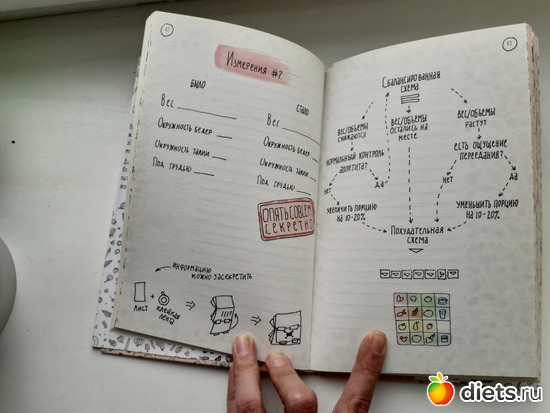 Измерения #2
было
Вес
Окружность бедер
Окружность талии
Под грудью
стало
Вес
Окружность бедер
Окружность талии
Под грудью
ОПЯТЬ СОВСЕМ
СЕКРЕТНО
Информацию
можно засекретить
лист
+
клейкая
лента
Сбалансированная
схема
Вес/объемы
снижаются
Вес/объемы
остались на
месте
Вес/объемы
растут
Нормальный контроль
аппетита?
Есть ощущение
переедания?
Нет
Да
Нет
Да
Увеличить порцию
на 10-20%
Уменьшить порцию
на 10-20%
Похудательная
схема
diets.ru